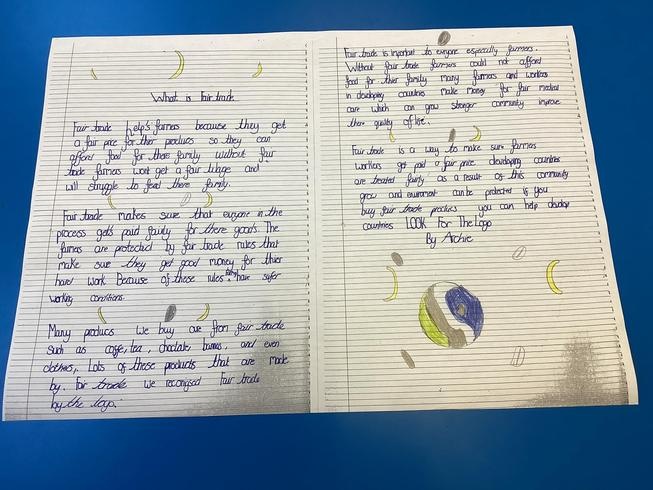 What is Fair trade
Fair trade help's farmers because they get
a fair price for ther products so they can
afford food for there family without fair
trade farmers wont get a fair wage and
will struggle to feed there family.
Fair trade makes sure that evryone in the
process gets paid fairly for there goods. The
farmers are protected by fair trade rules that
make sure they get good money for thier
hard work Because of these rules they have safer
working conditions.
Many producs we buy are from fair trade
such as coffe, tea, choclate, bananas, and even
clothes, Lots of these products that are made
by. Fair trade we recongised Fair trade
by the logo.
Fair trade is important to evryone especially farmers.
Without fair trade farmers could not afford
food for thier family many farmers and workers
in developing countries make money for fair medical
care which can grow stronger community improve
there quality of life.
Fair trade is a way to make sure farmers
workers get paid a fair price. developing countries
are treated fairly as a result of this community
grow and enviroment can be protected is you
buy fair trade producs you can help develop
countries LOOK For The Logo
By Archie